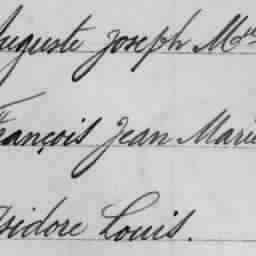 Auguste Joseph M
François Jean Marie
Isidore Louis.